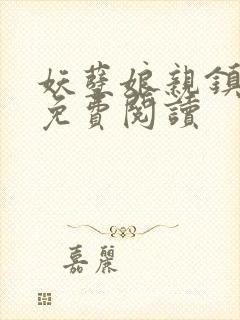 妖孽娘親鎮
免費閱讀
嘉麗